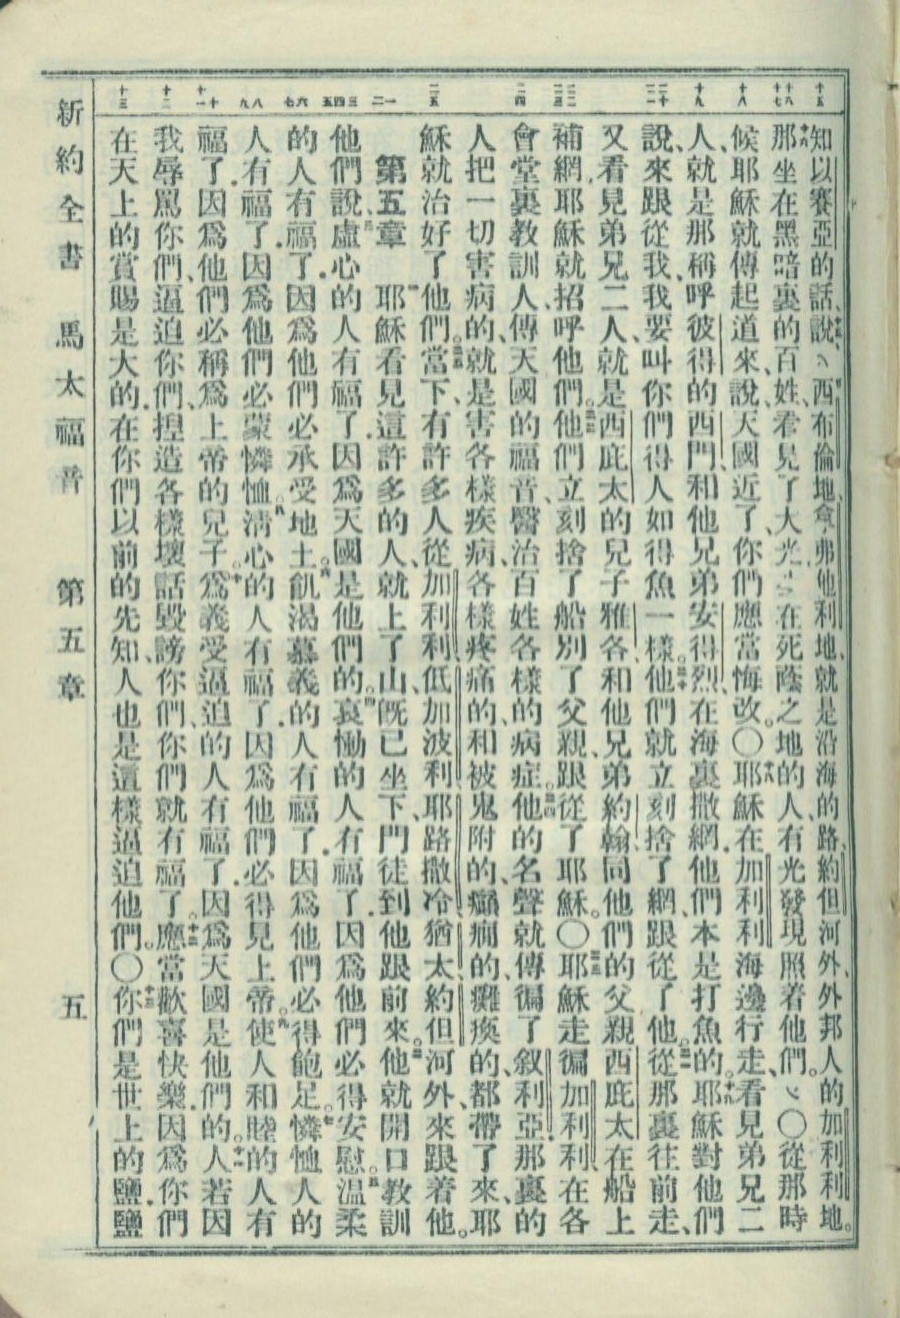 十五 十六 十七 十八 十九 二十 二一 二二 二三 二四 二五 一 二 三 四 五 六 七 八 九 十 十一 十二 十三
知以賽亞的話、說、西布倫地、拿弗他利地、就是沿海的路、約但河外、外邦人的加利利地。
那坐在黑暗裏的百姓、看見了大光、坐在死蔭之地的人、有光發現照着他們。〇從那時
候耶穌就傳起道來、說、天國近了、你們應當悔改。〇耶穌在加利利海邊行走、看見弟兄二
人、就是那稱呼彼得的西門、和他兄弟安得烈、在海裏撒網、他們本是打魚的。耶穌對他們
說、來跟從我、我要叫你們得人如得魚一樣。他們就立刻捨了網、跟從了他。從那裏往前走、
又看見弟兄二人、就是西庇太的兒子雅各、和他兄弟約翰、同他們的父親西庇太在船上
補網、耶穌就招呼他們。他們立刻捨了船、別了父親、跟從了耶穌。〇耶穌走徧加利利、在各
會堂裏教訓人、傳天國的福音、醫治百姓各樣的病症。他的名聲就傳徧了叙利亞、那裏的
人把一切害病的、就是害各樣疾病、各樣疼痛的、和被鬼附的、癲癇的、癱瘓的、都帶了來、耶
穌就治好了他們。當下有許多人、從加利利、低加波利、耶路撒冷、猶太、約但河外、來跟着他。
第五章 耶穌看見這許多的人、就上了山、旣已坐下、門徒到他跟前來。他就開口教訓
他們說、虛心的人有福了、因爲天國是他們的。哀慟的人有福了、因爲他們必得安慰。温柔
的人有福了、因爲他們必承受地土。飢渴慕義的人有福了、因爲他們必得飽足。憐恤人的
人有福了、因爲他們必蒙憐恤。淸心的人有福了、因爲他們必得見上帝。使人和睦的人有
福了、因爲他們必稱爲上帝的兒子。爲義受逼迫的人有福了、因爲天國是他們的。人若因
我辱罵你們、逼迫你們、揑造各樣壞話毀謗你們、你們就有福了。應當歡喜快樂、因爲你們
在天上的賞賜是大的、在你們以前的先知、人也是這樣逼迫他們。〇你們是世上的鹽、鹽
新約全書 馬太福音 第五章 五